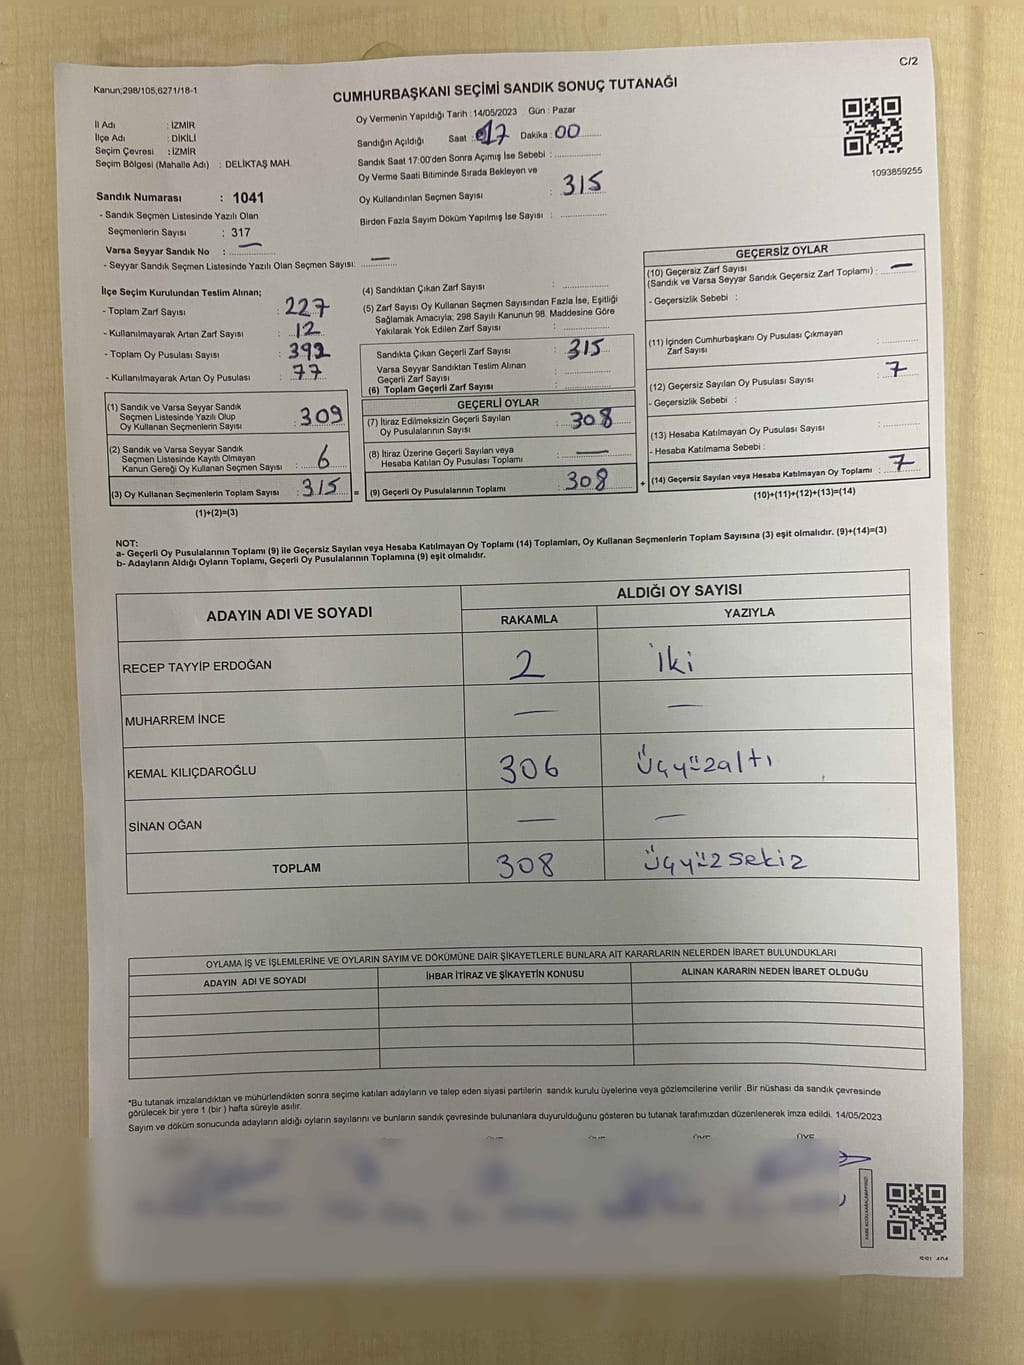 C/2
Kanun;298/105,6271/18-1
CUMHURBAŞKANI SEÇİMİ SANDIK SONUÇ TUTANAĞI
Oy Vermenin Yapıldığı Tarih : 14/05/2023 Gün : Pazar
İl Adı : İZMİR
İlçe Adı : DİKİLİ
Seçim Çevresi : İZMİR
Seçim Bölgesi (Mahalle Adı) : DELİKTAŞ MAH.
Sandığın Açıldığı Saat : 17 Dakika : 00
Sandık Saat 17:00'den Sonra Açımış İse Sebebi :
Oy Verme Saati Bitiminde Sırada Bekleyen ve
Oy Kullandırılan Seçmen Sayısı : 315
Birden Fazla Sayım Döküm Yapılmış İse Sayısı :
1093859255
Sandık Numarası : 1041
- Sandık Seçmen Listesinde Yazılı Olan
Seçmenlerin Sayısı : 317
Varsa Seyyar Sandık No : —
- Seyyar Sandık Seçmen Listesinde Yazılı Olan Seçmen Sayısı: —
İlçe Seçim Kurulundan Teslim Alınan;
- Toplam Zarf Sayısı : 227
- Kullanılmayarak Artan Zarf Sayısı : 12
- Toplam Oy Pusulası Sayısı : 392
- Kullanılmayarak Artan Oy Pusulası : 77
(1) Sandık ve Varsa Seyyar Sandık
Seçmen Listesinde Yazılı Olup
Oy Kullanan Seçmenlerin Sayısı : 309
(2) Sandık ve Varsa Seyyar Sandık
Seçmen Listesinde Kayıtlı Olmayan
Kanun Gereği Oy Kullanan Seçmen Sayısı : 6
(3) Oy Kullanan Seçmenlerin Toplam Sayısı : 315 =
(1)+(2)=(3)
(4) Sandıktan Çıkan Zarf Sayısı :
(5) Zarf Sayısı Oy Kullanan Seçmen Sayısından Fazla İse, Eşitliği
Sağlamak Amacıyla; 298 Sayılı Kanunun 98. Maddesine Göre
Yakılarak Yok Edilen Zarf Sayısı :
Sandıkta Çıkan Geçerli Zarf Sayısı : 315
Varsa Seyyar Sandıktan Teslim Alınan
Geçerli Zarf Sayısı :
(6) Toplam Geçerli Zarf Sayısı :
GEÇERLİ OYLAR
(7) İtiraz Edilmeksizin Geçerli Sayılan
Oy Pusulalarının Sayısı : 308
(8) İtiraz Üzerine Geçerli Sayılan veya
Hesaba Katılan Oy Pusulası Toplamı : —
(9) Geçerli Oy Pusulalarının Toplamı : 308 +
GEÇERSİZ OYLAR
(10) Geçersiz Zarf Sayısı
(Sandık ve Varsa Seyyar Sandık Geçersiz Zarf Toplamı) : —
- Geçersizlik Sebebi :
(11) İçinden Cumhurbaşkanı Oy Pusulası Çıkmayan
Zarf Sayısı :
(12) Geçersiz Sayılan Oy Pusulası Sayısı : 7
- Geçersizlik Sebebi :
(13) Hesaba Katılmayan Oy Pusulası Sayısı :
- Hesaba Katılmama Sebebi :
(14) Geçersiz Sayılan veya Hesaba Katılmayan Oy Toplamı : 7
(10)+(11)+(12)+(13)=(14)
NOT:
a- Geçerli Oy Pusulalarının Toplamı (9) ile Geçersiz Sayılan veya Hesaba Katılmayan Oy Toplamı (14) Toplamları, Oy Kullanan Seçmenlerin Toplam Sayısına (3) eşit olmalıdır. (9)+(14)=(3)
b- Adayların Aldığı Oyların Toplamı, Geçerli Oy Pusulalarının Toplamına (9) eşit olmalıdır.
ADAYIN ADI VE SOYADI
ALDIĞI OY SAYISI
RAKAMLA YAZIYLA
RECEP TAYYİP ERDOĞAN 2 iki
MUHARREM İNCE — —
KEMAL KILIÇDAROĞLU 306 Üçyüzaltı
SİNAN OĞAN — —
TOPLAM 308 Üçyüzsekiz
OYLAMA İŞ VE İŞLEMLERİNE VE OYLARIN SAYIM VE DÖKÜMÜNE DAİR ŞİKAYETLERLE BUNLARA AİT KARARLARIN NELERDEN İBARET BULUNDUKLARI
ADAYIN ADI VE SOYADI İHBAR İTİRAZ VE ŞİKAYETİN KONUSU ALINAN KARARIN NEDEN İBARET OLDUĞU
*Bu tutanak imzalandıktan ve mühürlendikten sonra seçime katılan adayların ve talep eden siyasi partilerin sandık kurulu üyelerine veya gözlemcilerine verilir .Bir nüshası da sandık çevresinde
görülecek bir yere 1 (bir ) hafta süreyle asılır.
Sayım ve döküm sonucunda adayların aldığı oyların sayılarını ve bunların sandık çevresinde bulunanlara duyurulduğunu gösteren bu tutanak tarafımızdan düzenlenerek imza edildi. 14/05/2023